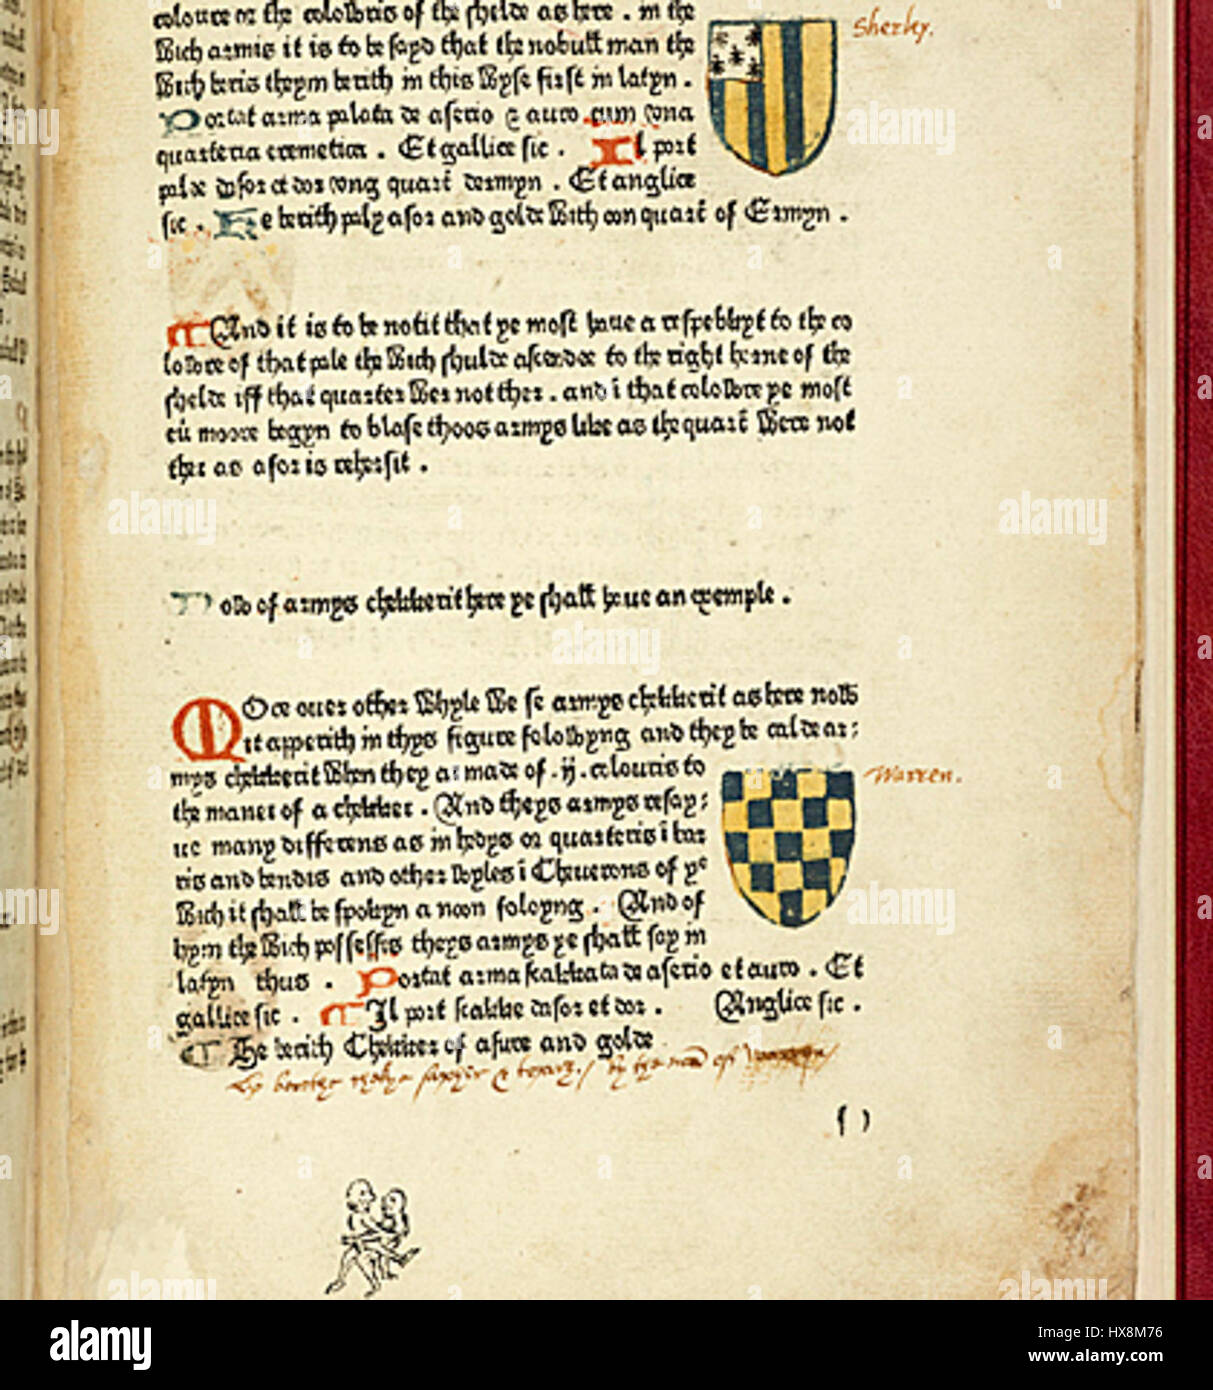 coloure or the colowris of the shelde as here . in the
Wich armis it is to be sayd that the nobull man the
Wich beris theym berith in this Wyse first in latyn .
Portat arma palata de aserio & auro cum vna
quarteria eremetica . Et gallice sic . Il port
pale dasor et dor vng quart dermyn . Et anglice
sic . He berith paly asor and golde With oon quart of Ermyn .
Sherley.
And it is to be notit that ye most haue a respekkyt to the co
lowre of that pale the Wich shulde ascendee to the right horne of the
shelde iff that quarter Wer not ther . and i that colowre ye most
eu moore begyn to blase thoos armys like as the quart Were not
ther as afor is rehersit .
Now of armys chekkerit here ye shall haue an exemple .
MOre ouer other Whyle We se armys chekkerit as here now
it apperith in thys figure folowyng and they be calde ar:
mys chekkerit When they ar made of .ij. colouris to
the maner of a chekker . And theys armys resay:
ue many differens as in hedys or quarteris i bar
ris and bendis and other Wyles i Cheuerons of ye
Wich it shall be spokyn a noon foloyng . And of
hym the Wich possesses theys armys ye shall say in
latyn thus . Portat arma scakkata de aserio et auro . Et
gallice sic . Il port scakke dasor et dor . Anglice sic .
He berith Chekker of asure and golde
Warren.
f 1
alamy
alamy
Image ID: HX8M76
www.alamy.com